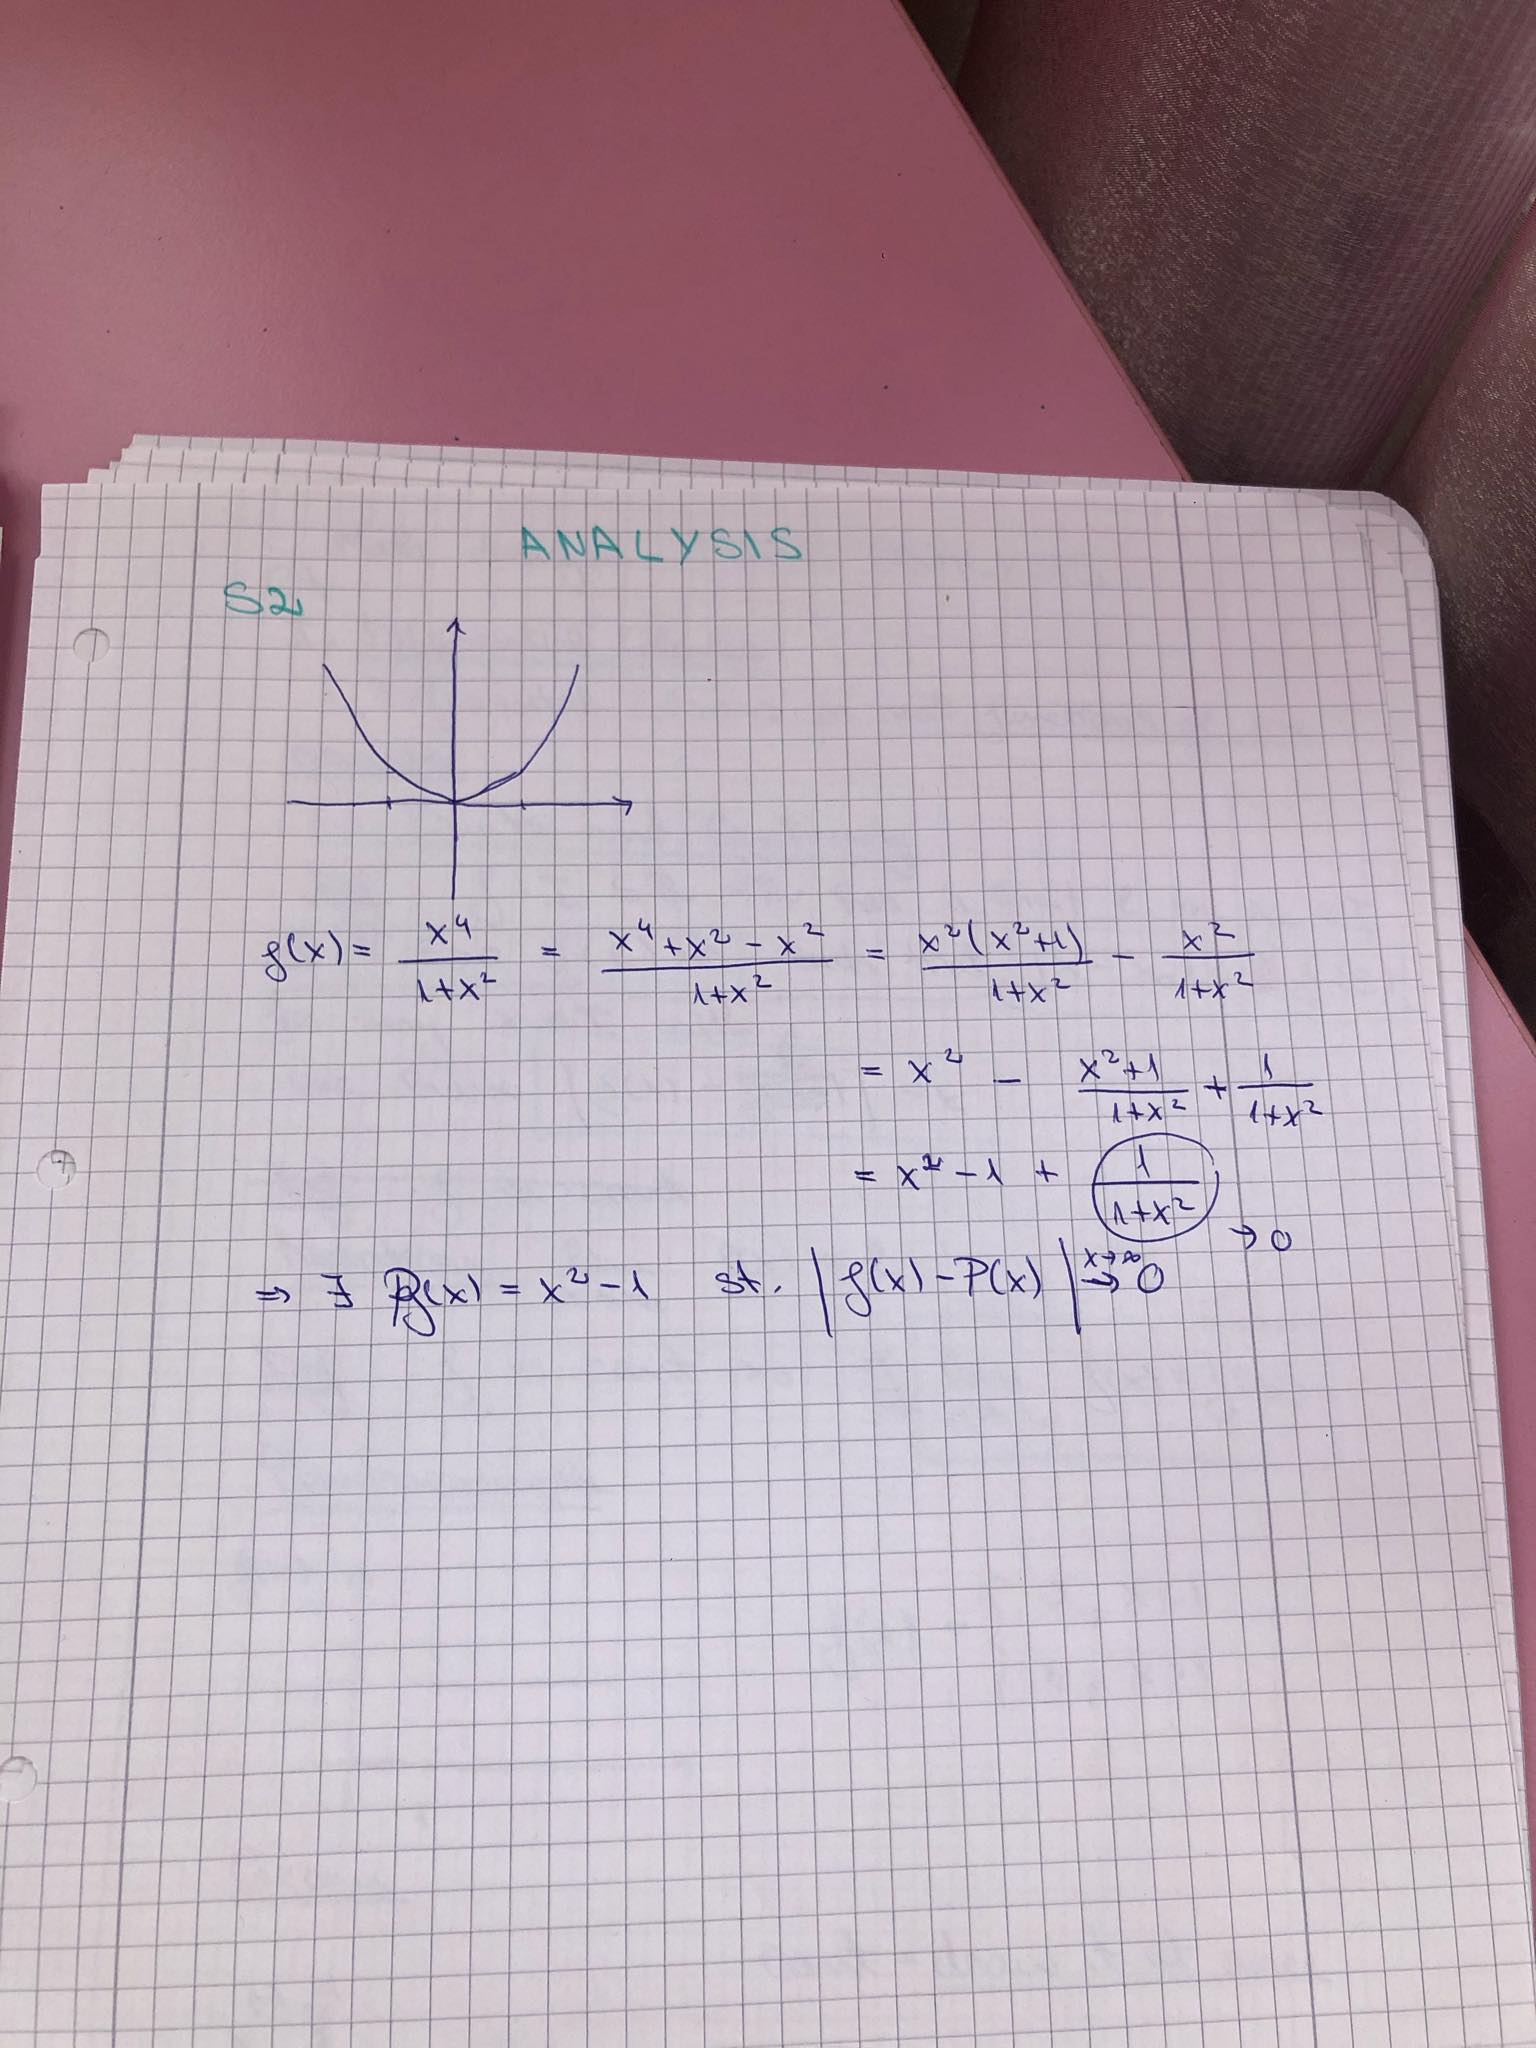 ANALYSIS
S2
g(x) = x⁴/(1+x²) = (x⁴+x²-x²)/(1+x²) = x²(x²+1)/(1+x²) - x²/(1+x²)
= x² - (x²+1)/(1+x²) + 1/(1+x²)
= x²-1 + 1/(1+x²) → 0
⇒ ∃ P(x) = x²-1 st. |g(x)-P(x)| →^{x→∞} 0